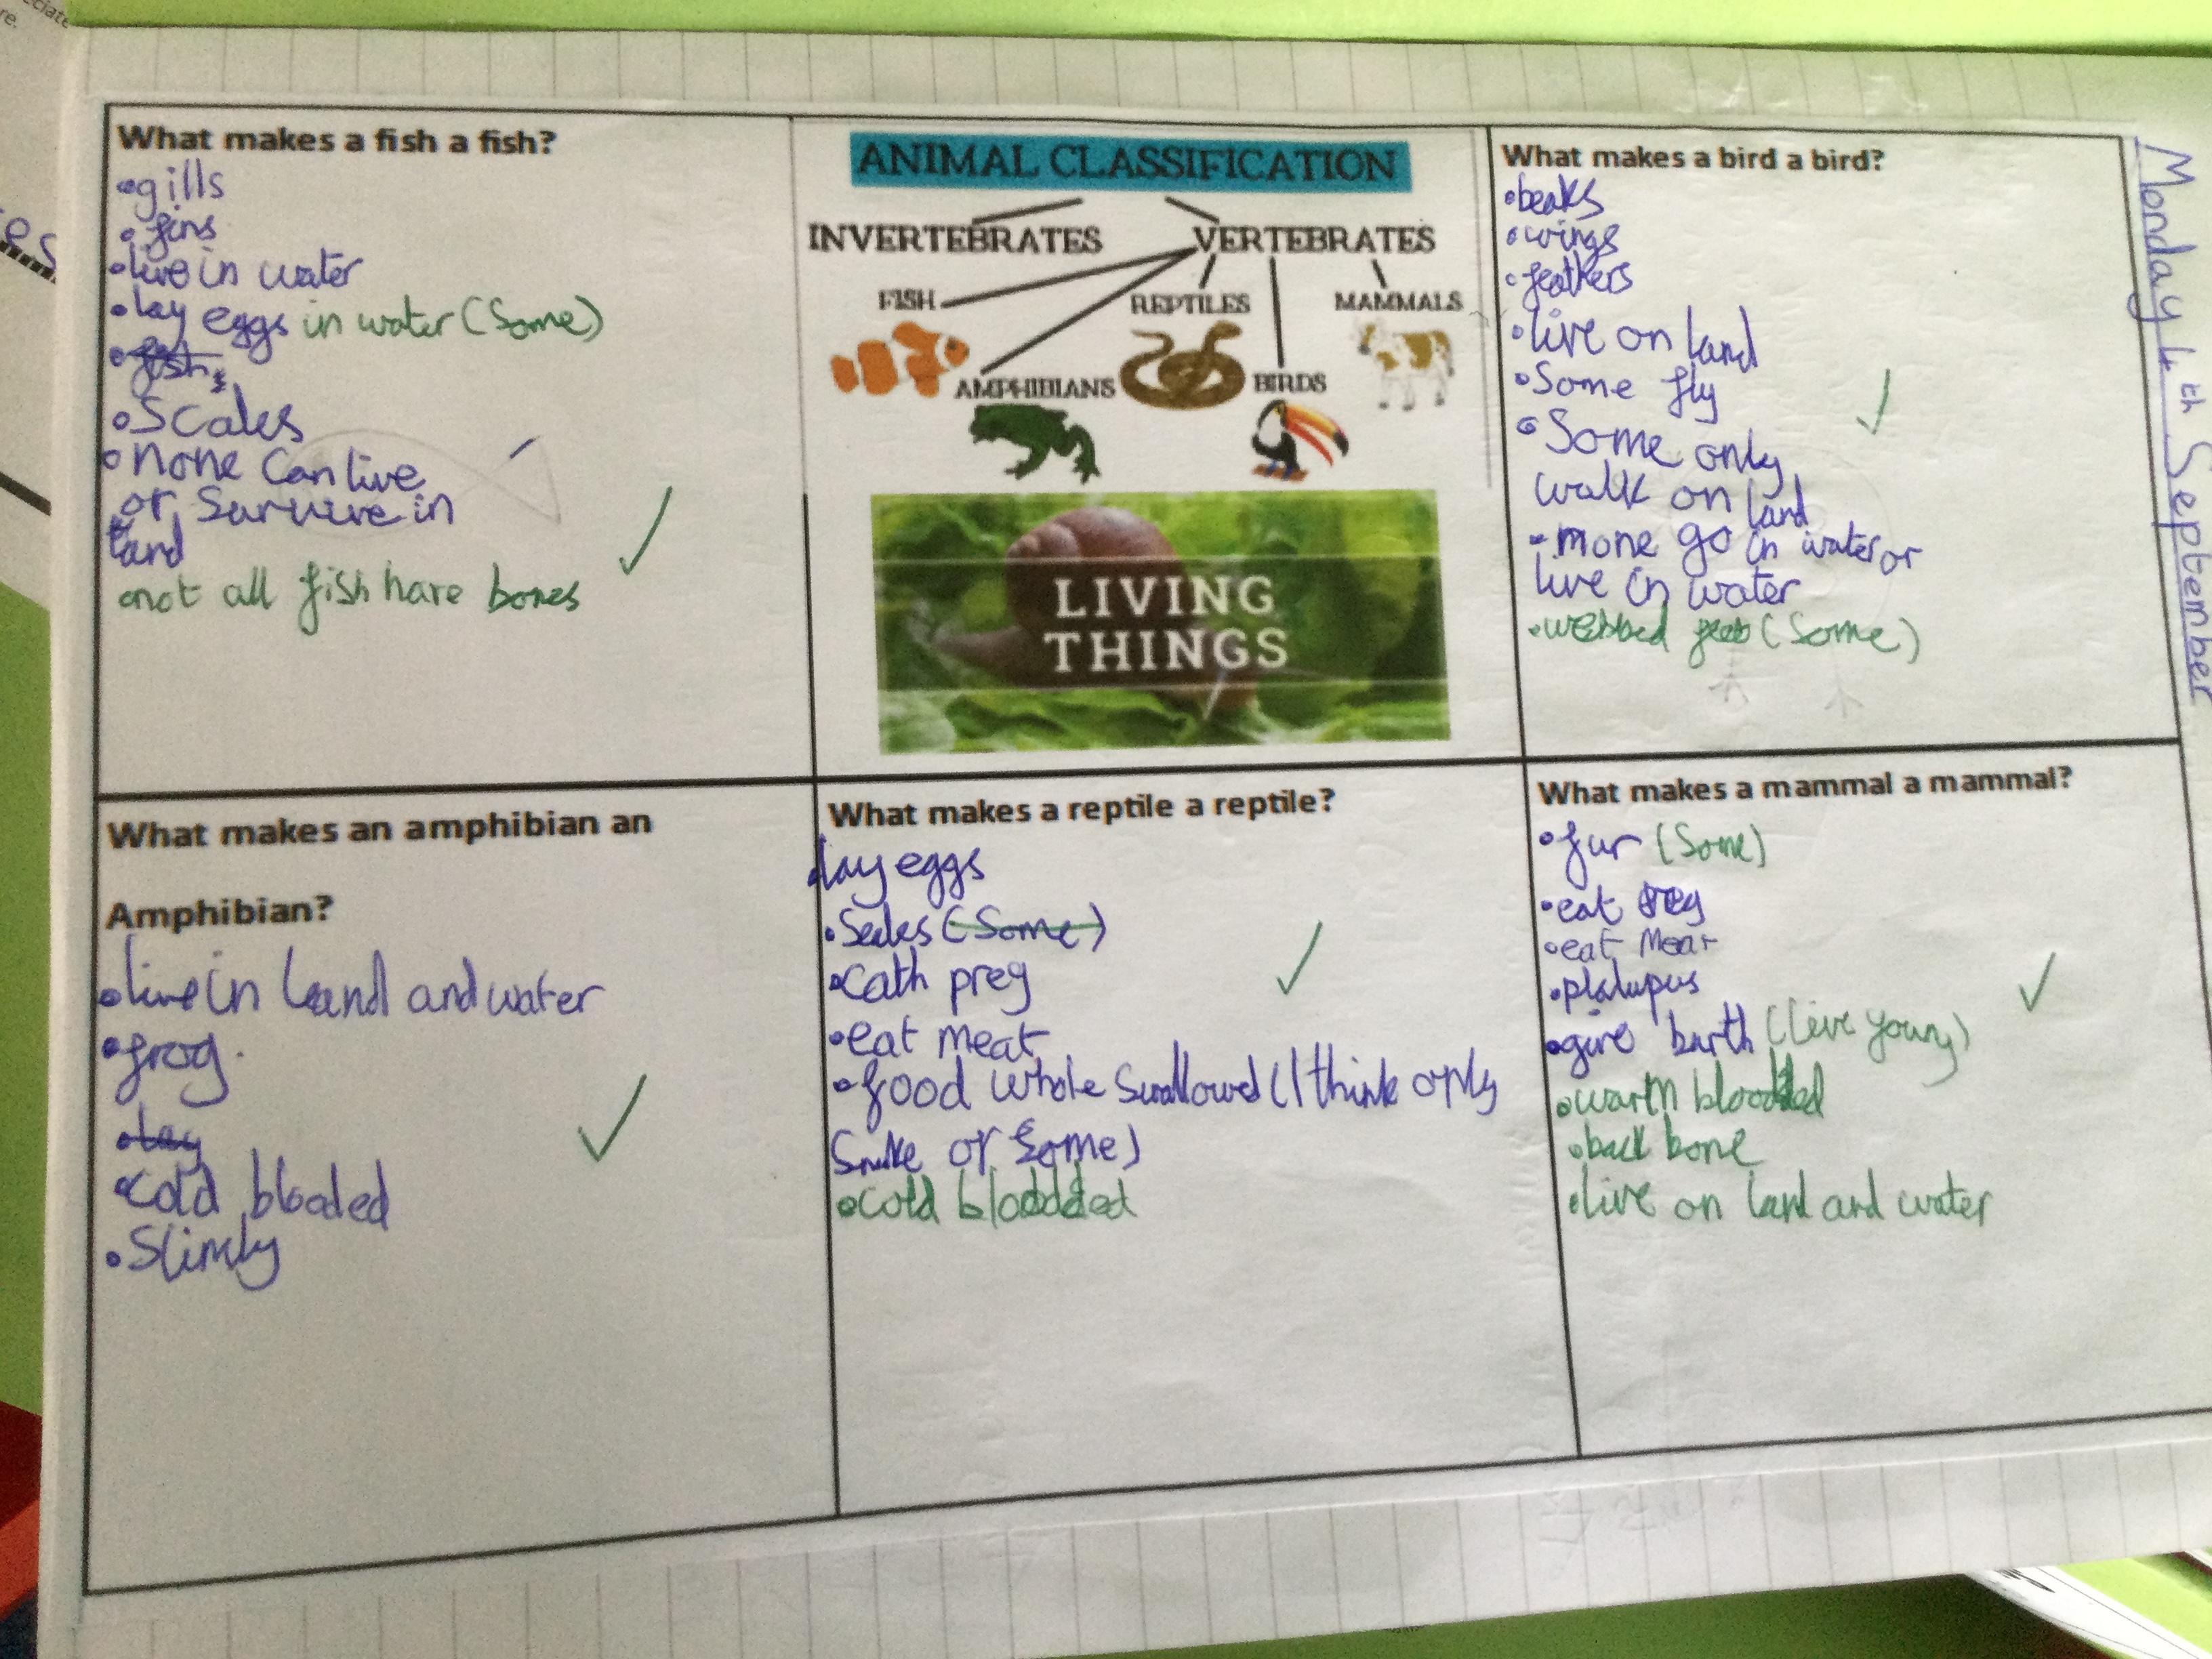 What makes a fish a fish?
•gills
•fins
•live in water
•lay eggs in water (Some)
•fish
•Scales
•none Can live
or Survive in
land
•not all fish have bones
ANIMAL CLASSIFICATION
INVERTEBRATES VERTEBRATES
FISH REPTILES MAMMALS
AMPHIBIANS BIRDS
LIVING
THINGS
What makes a bird a bird?
•beaks
•wings
•feathers
•live on land
•Some fly
•Some only
walk on land
•none go in water or
live in water
•webbed feet (Some)
Monday 4th September
What makes an amphibian an
Amphibian?
•live in land and water
•frog.
•lay
•cold blooded
•Slimly
What makes a reptile a reptile?
•lay eggs
•Scales (Some)
•Cath preg
•eat meat
•food whole Swallowed (I think only
Snake or Some)
•cold blodded
What makes a mammal a mammal?
•fur (Some)
•eat
•eat Meat
•platupus
•give birth (live young)
•warm blooded
•back bone
•live on land and water